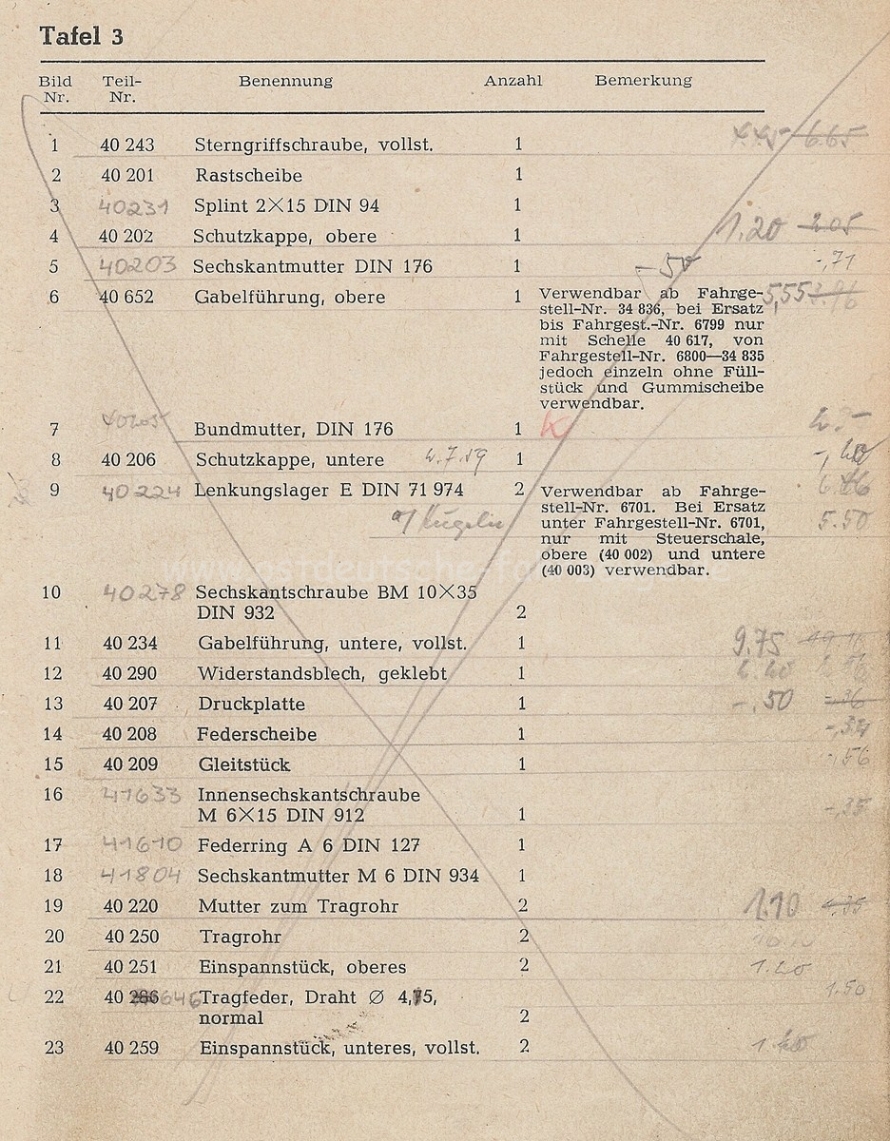 Tafel 3
Bild Teil- Benennung Anzahl Bemerkung
Nr. Nr.
1 40 243 Sterngriffschraube, vollst. 1 6.65
2 40 201 Rastscheibe 1
3 40231 Splint 2×15 DIN 94 1
4 40 202 Schutzkappe, obere 1 1.20 2.05
5 40203 Sechskantmutter DIN 176 1 -50 -,71
6 40 652 Gabelführung, obere 1 Verwendbar ab Fahrge- 5,55
stell-Nr. 34 836, bei Ersatz
bis Fahrgest.-Nr. 6799 nur
mit Schelle 40 617, von
Fahrgestell-Nr. 6800—34 835
jedoch einzeln ohne Füll-
stück und Gummischeibe
verwendbar.
7 40205 Bundmutter, DIN 176 1
8 40 206 Schutzkappe, untere 1
9 40224 Lenkungslager E DIN 71 974 2 Verwendbar ab Fahrge-
stell-Nr. 6701. Bei Ersatz
unter Fahrgestell-Nr. 6701, 5.50
nur mit Steuerschale,
obere (40 002) und untere
(40 003) verwendbar.
10 40278 Sechskantschraube BM 10×35
DIN 932 2
11 40 234 Gabelführung, untere, vollst. 1 9.75
12 40 290 Widerstandsblech, geklebt 1
13 40 207 Druckplatte 1 -.50 -.36
14 40 208 Federscheibe 1
15 40 209 Gleitstück 1 -,56
16 41633 Innensechskantschraube
M 6×15 DIN 912 1 -,35
17 41610 Federring A 6 DIN 127 1
18 41804 Sechskantmutter M 6 DIN 934 1
19 40 220 Mutter zum Tragrohr 2 1.10
20 40 250 Tragrohr 2
21 40 251 Einspannstück, oberes 2 1.20
22 40 286 646 Tragfeder, Draht ∅ 4,75, 1.50
normal 2
23 40 259 Einspannstück, unteres, vollst. 2